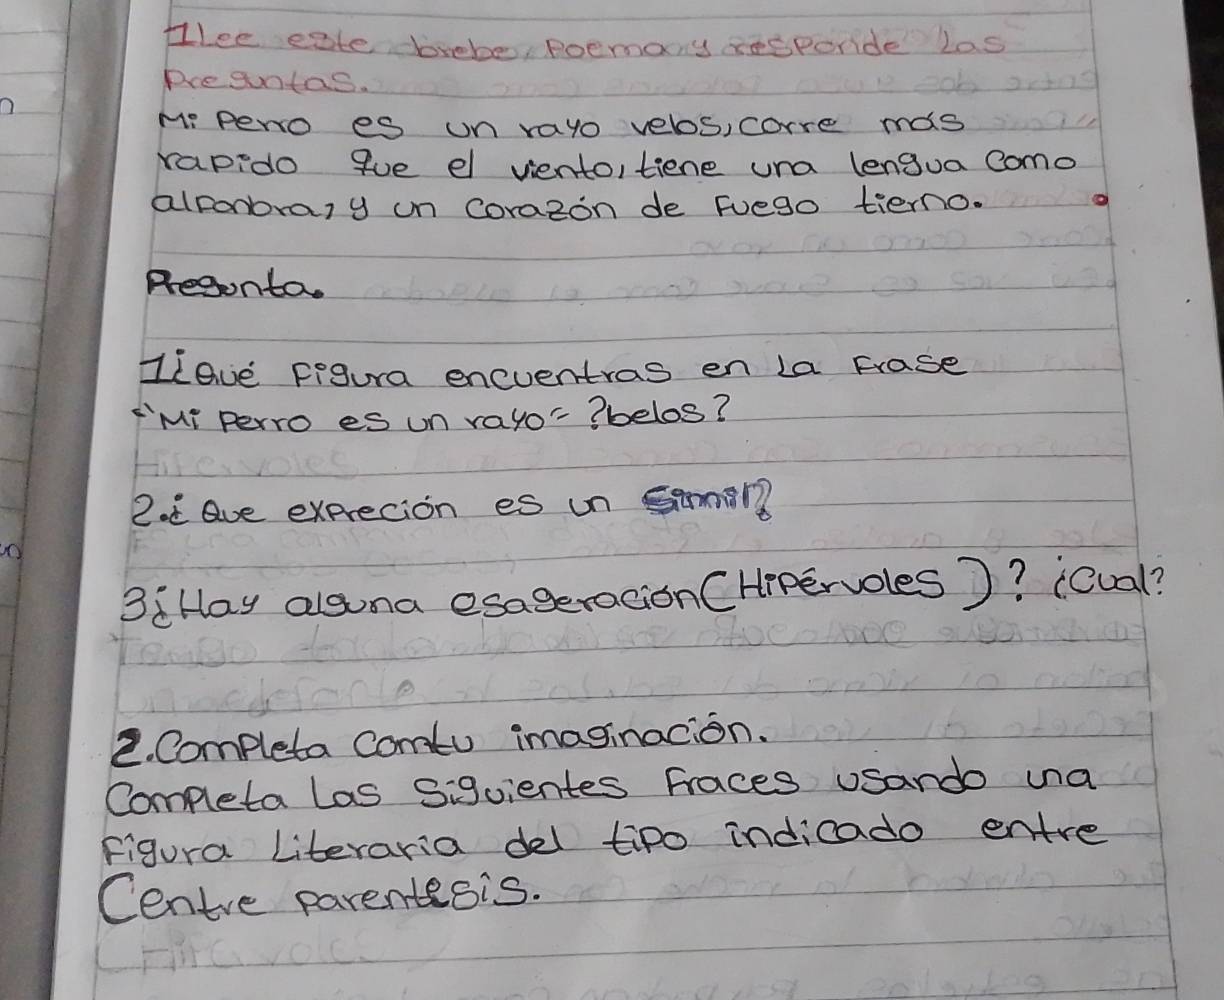 1 lee este brebe poema y responde las
preguntas.
Mi perro es un rayo velos, corre más
rapido que el viento, tiene una lengua como
alponbra, y un corazón de fuego tierno.
Pregunta.
1¿Qué figura encuentras en la frase
"Mi perro es un rayo" ?belos?
Hipervoles
2.¿Que expreción es un Simil?
3¿Hay alguna esageración (Hipérvoles)? ¿Cual?
2. Completa com tu imaginación.
Completa las siguientes fraces usando una
figura literaria del tipo indicado entre
Centre parentesis.